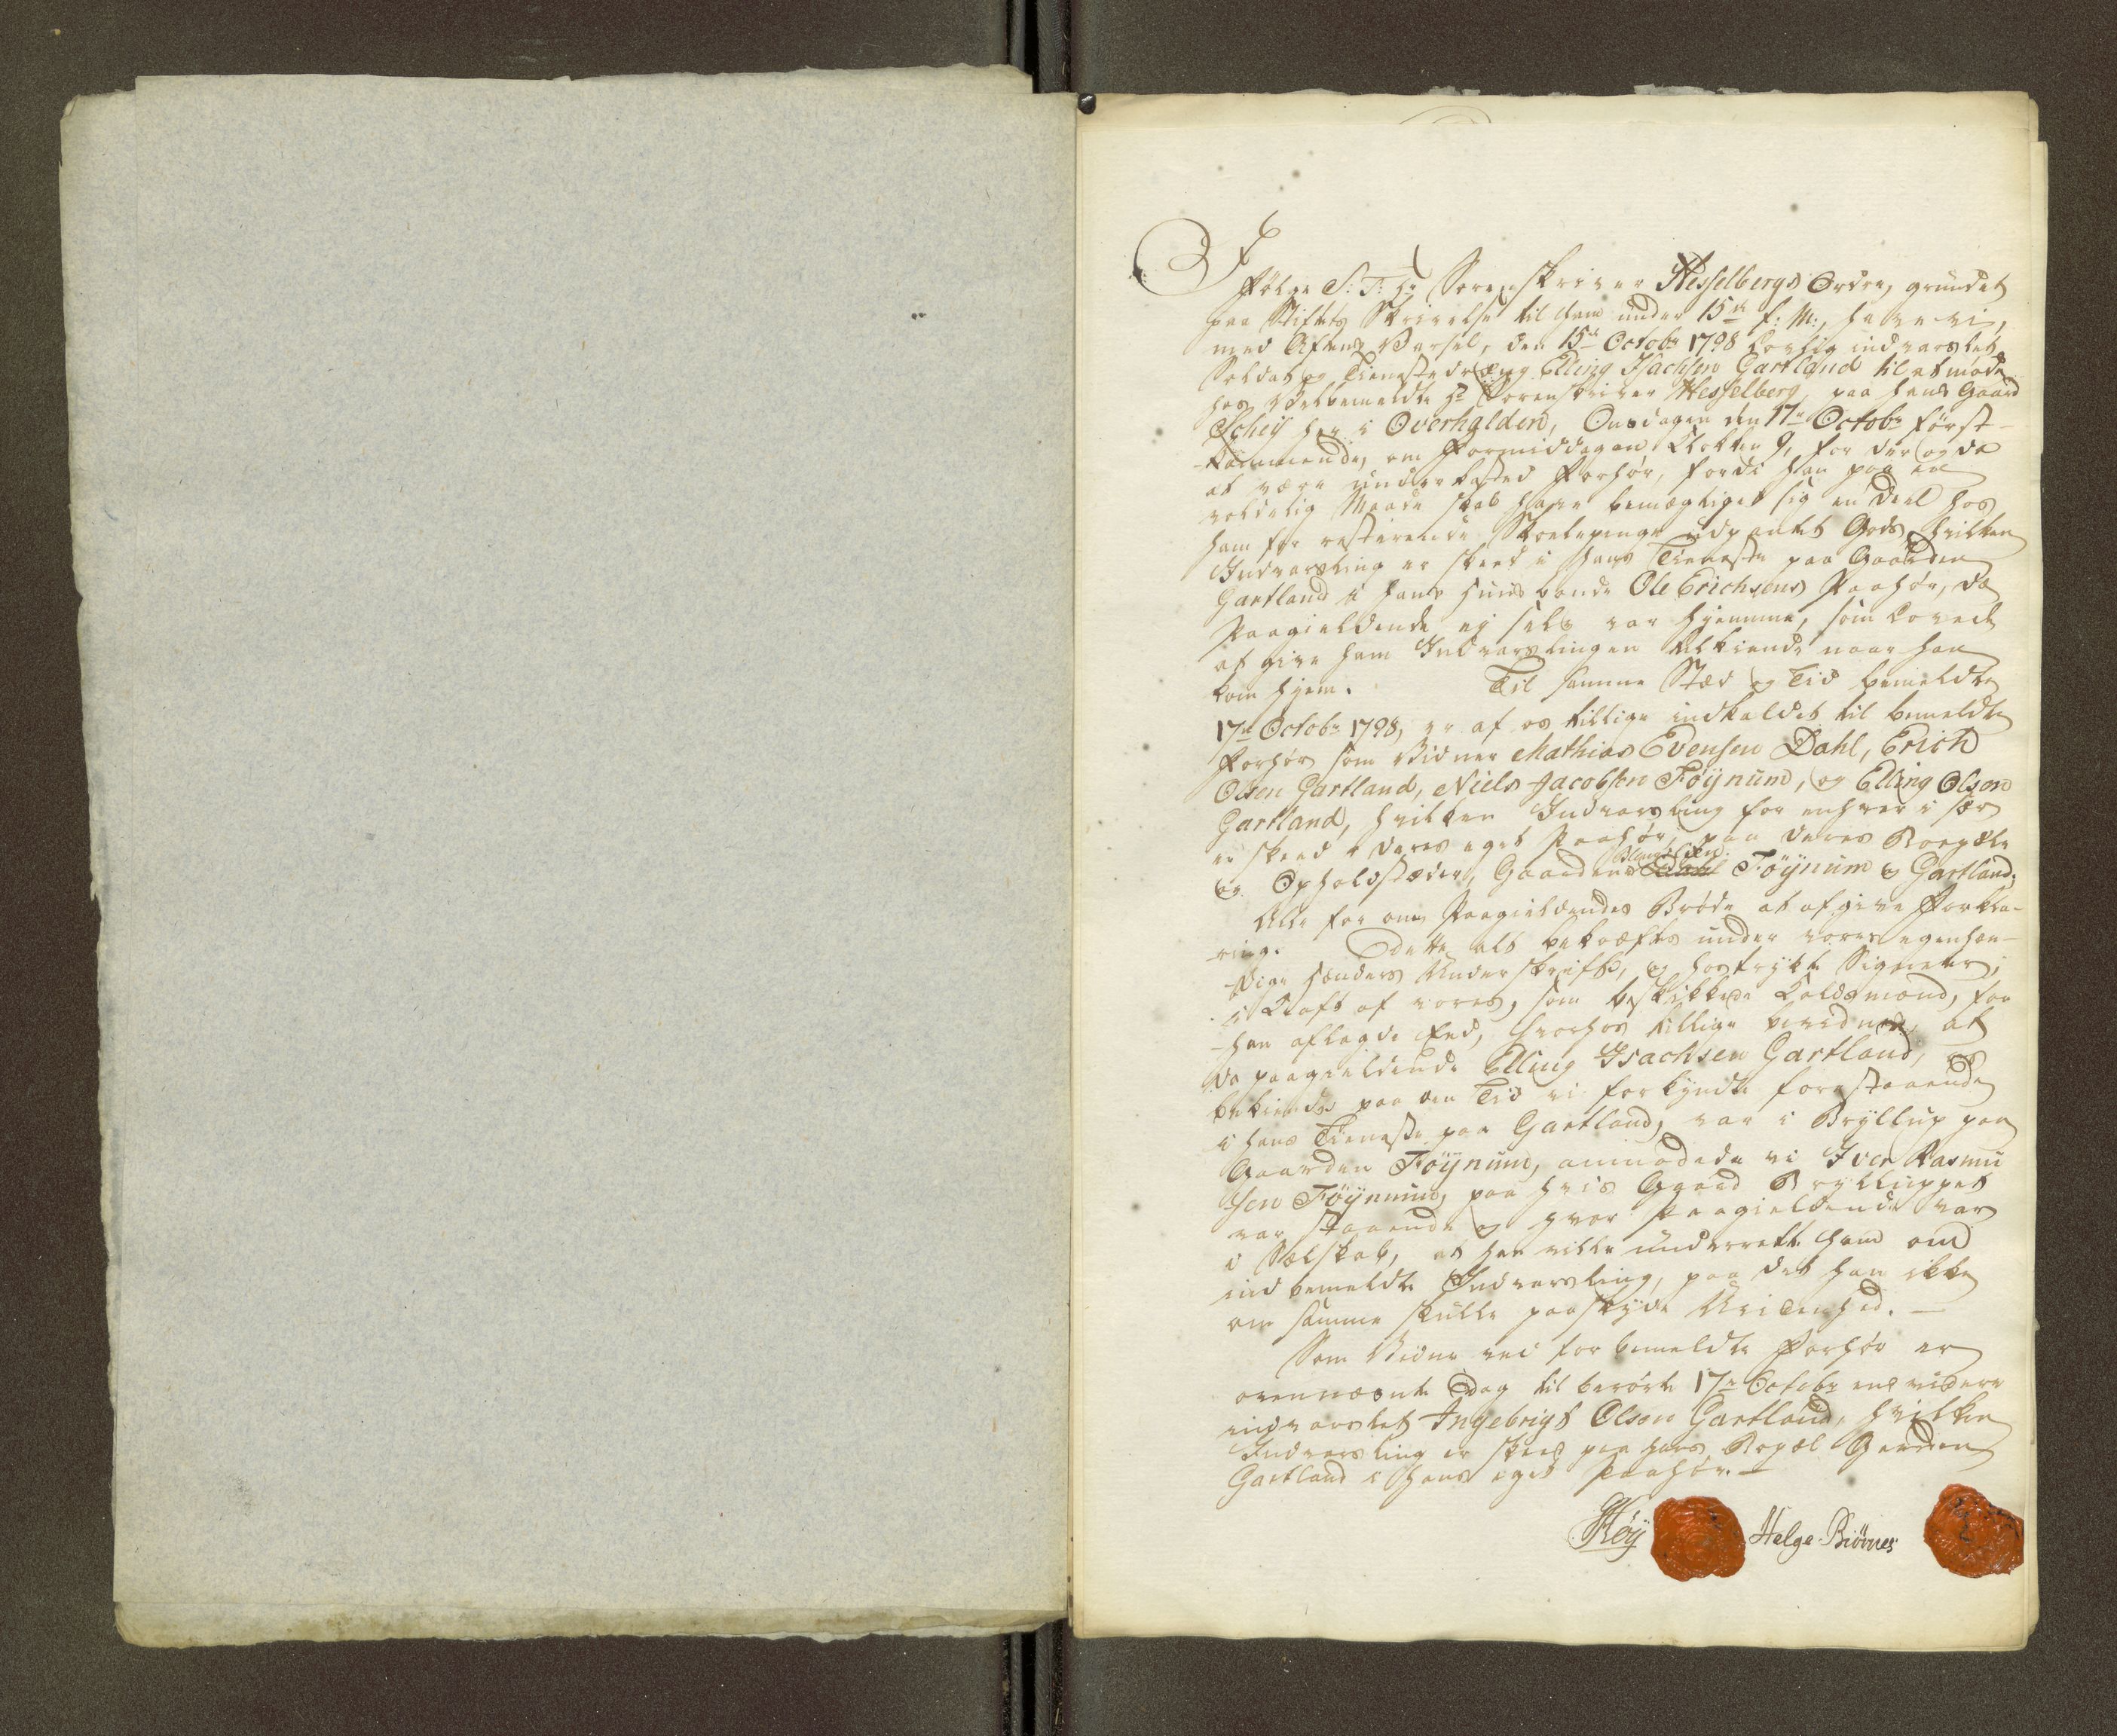 I
følge S: T: Hr Sorenskriver Hesselbergs Ordre, grundet
paa Stiftets Skrivelse til ham under 15de f: M:, have vi,
med Aftens Varsel, den 15de Octobr 1798 lovlig indvarslet
Soldat og Tienestedræng Elling Isachsen Gartland til at møde
hos Velbemeldte Hr Sorenskriver Hesselberg, paa hans Gaard
Schey her i Overhalden, Onsdagen den 17de Octobr først-
kommende, om Formiddagen Klokken 9, for der og da
at være underkasted Forhør, fordi han paa en
voldelig Maade skal have bemægtiget sig en deel hos
ham for resterende Skolepenge udpantet Gods, hvilken
Indvarsling er skeed i hans Tieneste paa Gaarden
Gartland i hans Huusbonde Ole Erichsens Paahør, da
Paagieldende ej selv var hjemme, som lovede
at give ham Indvarslingen tilkiende naar han
kom hjem. Til samme Stæd og Tid bemeldte
17de Octobr 1798, er af os tillige indkaldet til bemeldte
Forhør som Vidner Mathias Evensen Dahl, Erich
Olsen Gartland, Niels Jacobsen Föÿnum, og Elling Olsen
Gartland, hvilken Indvarsling for enhver i sær
er skeed i deres eget Paahør, paa deres Boepæle
og Opholdstæder, Gaardene Föÿnum og Gartland;
Alle for om Paagieldendes Brøde at afgive Forkla-
ring. Dette alt bekræftes under vores egenhæn-
dige Hænders Underskrift, og hostrykte Signeter,
i Kraft af vores, som beskikkede Kaldsmænd, for-
hen aflagde Eed, hvorhos tillige bevidnes, at
da paagieldende Elling Isachsen Gartland, os
bekiendt paa den Tid vi forkyndte forestaaende
i hans Tieneste paa Gartland, var i Bryllup paa
Gaarden Föÿnum, anmodede vi Iver Rasmu
sen Föÿnum, paa hvis Gaard Bryllupet
var staaende og hvor Paagieldende var
i Sælskab, at han ville underrette ham om
indbemeldte Indvarsling, paa det han ikke
om samme skulle paaskyde Uvidenhed. –
Som Vidne ved forbemeldte Forhør er
ovennævnte Dag til berørte 17de Octobr end videre
indvarslet Ingebrigt Olsen Gartland, hvilken
Indvarsling er skeed paa hans Bopæl Garden
Gartland i hans eget Paahør. –
Höÿ Helge Biörnes